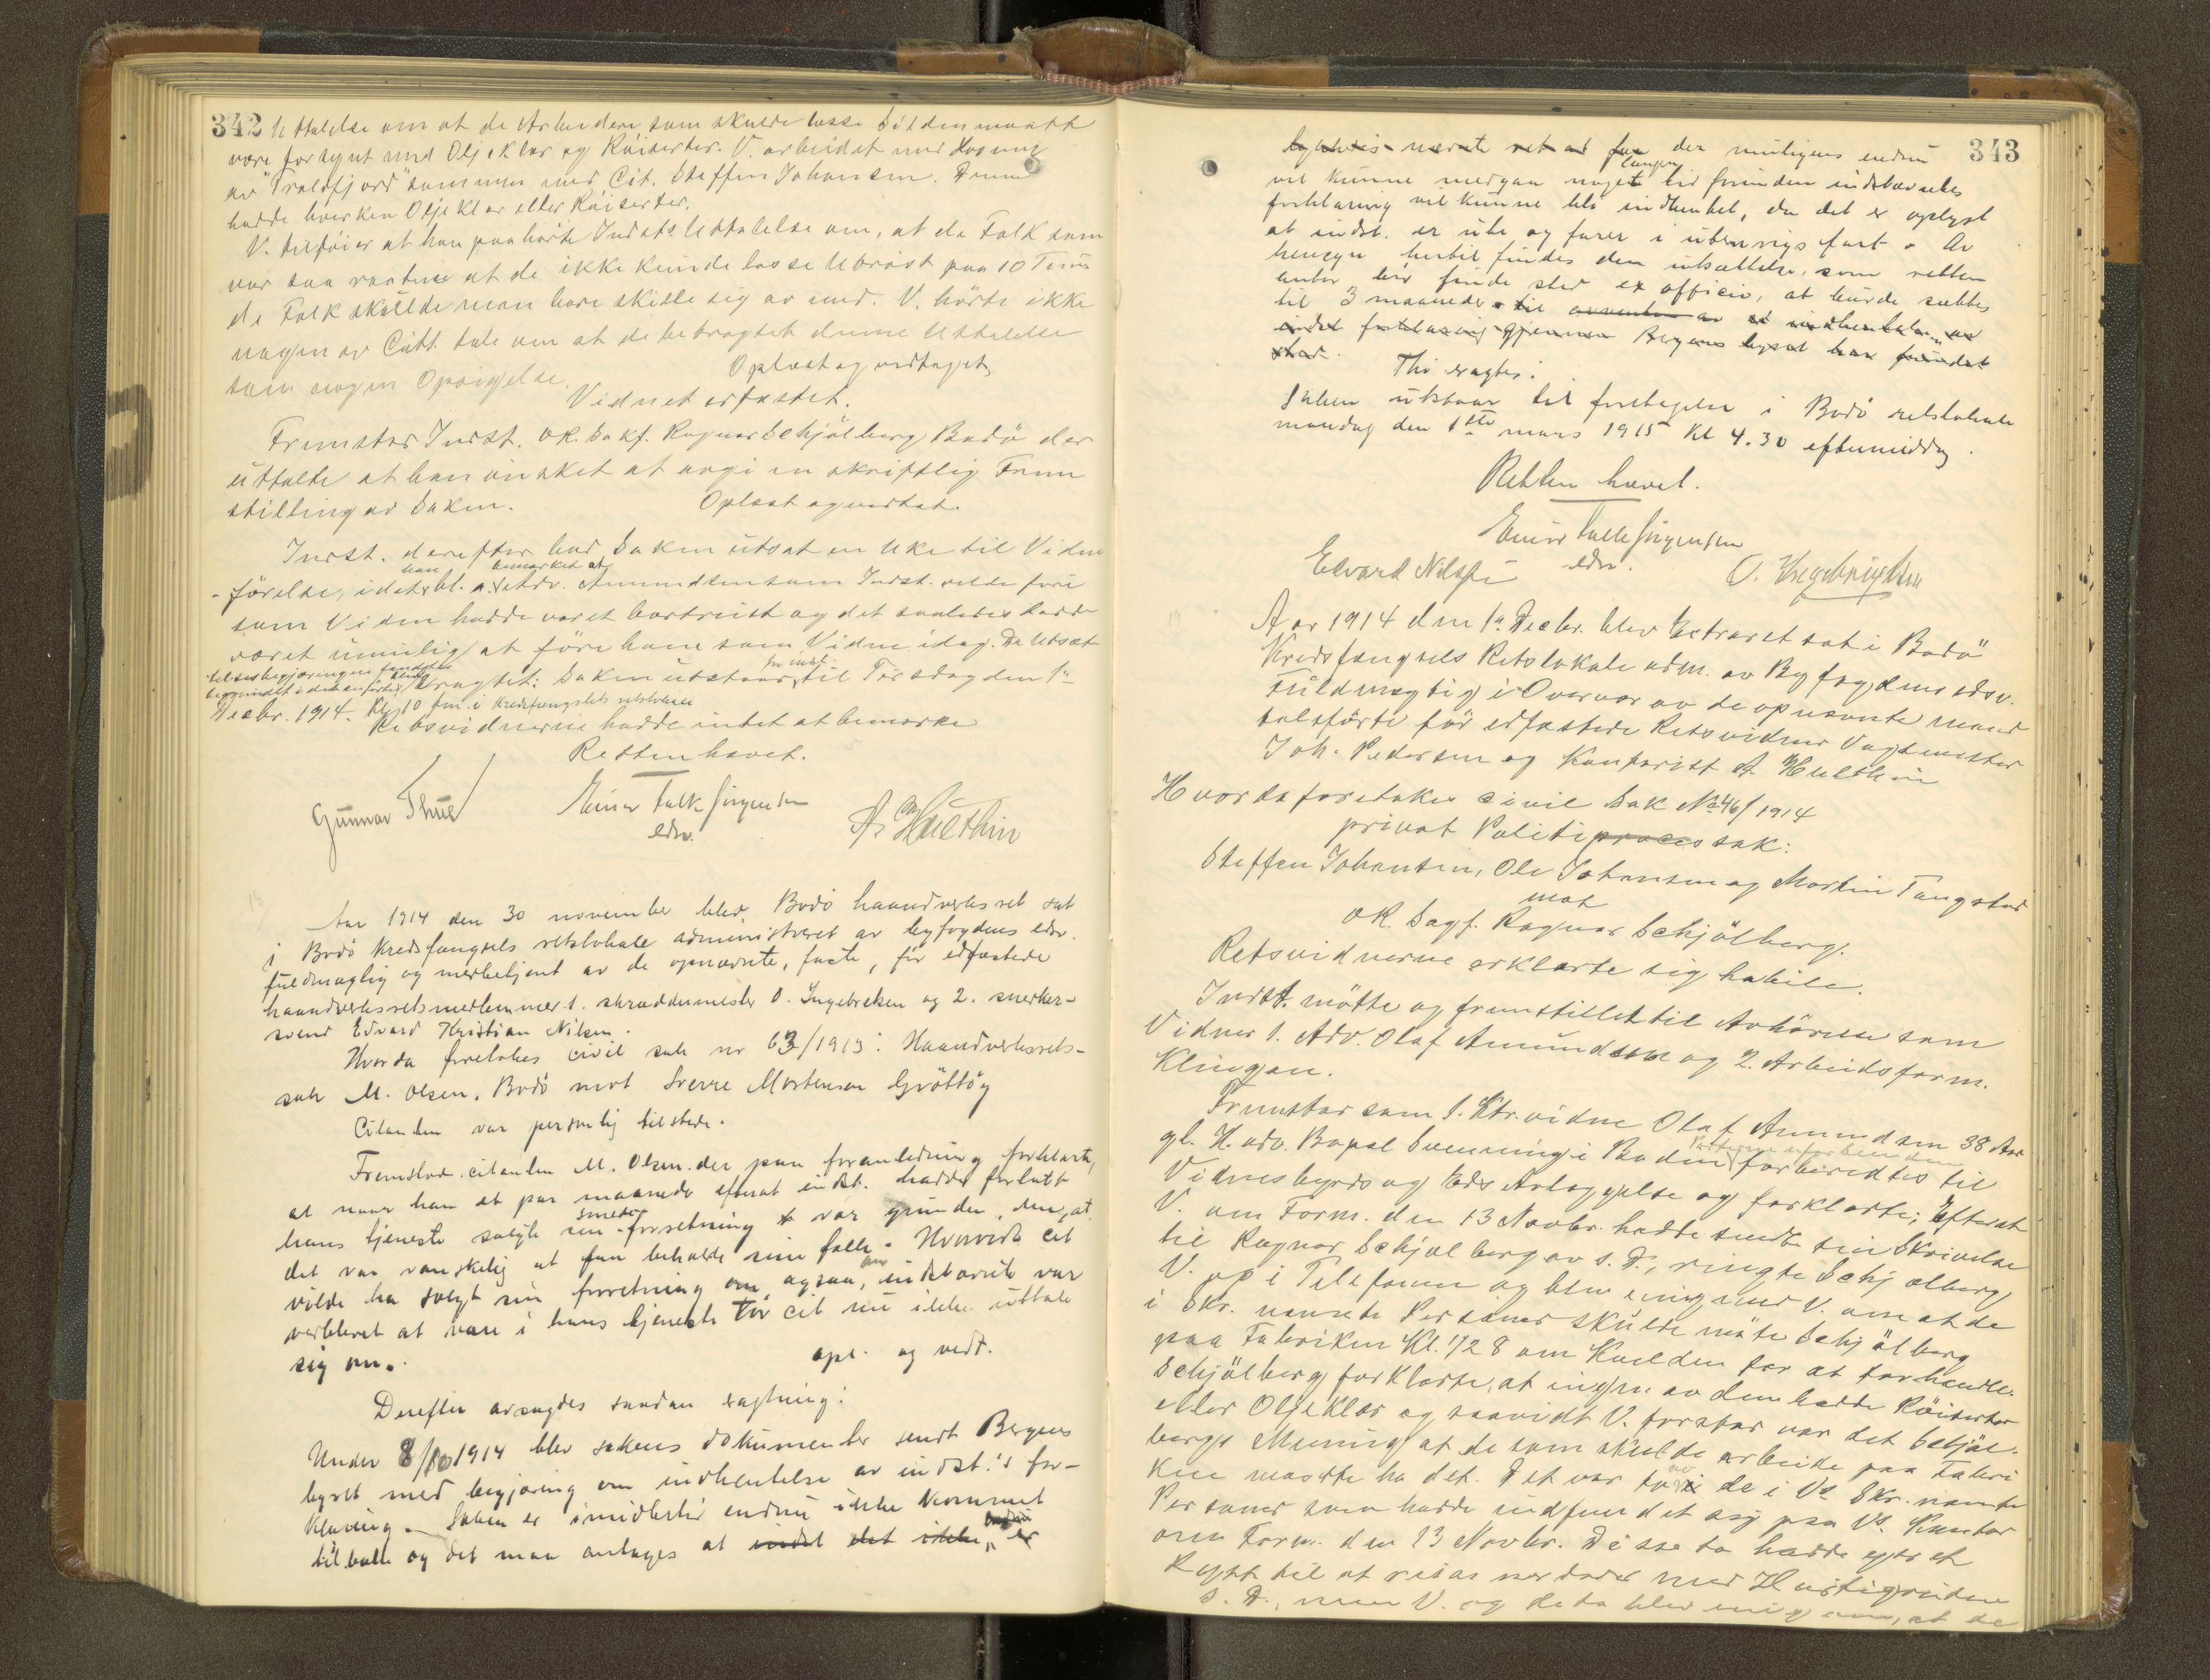 342 Uttalelse om at de Arbeidere som skulde losse Silden maatte
være forsynt med Oljeklær og Røiserter. V. arbeidet med Losning
av "Troldfjord" sammen med Cit. Steffen Johansen. Denne
hadde hverken Oljeklær eller Røiserter.
V. tilføier at han paahørte Indst.s Uttalelse om, at de Folk som
var saa vantene at de ikke kunde losse Ubrøst paa 10 Timer
de Folk skulde man bare skille sig av med. V. hørte ikke
nogen av Citt. tale om at de betragtet denne Uttalelse
som nogen Opsigelse. Oplæst og vedtaget.
Vidnet edfæstet.
Fremstod Indst. OR. Sakf. Ragnar Schjölberg Bodö der
uttalte at han önsket at avgi en skriftlig Frem
stilling av Saken. Oplæst og vedtat.
Indst. derefter bad Saken utsat en Uke til Vidne
-førelse, idet han bl. a. bemærket at Adv. Amundsen som Indst. vilde føre
som Vidne hadde været bortreist og det saaledes hadde
været umulig at føre ham som Vidne idag. Da Utsæt
telsesbegjæringen fandtes
begrundet i det anførte, blev eragtet: Saken utstaar for inst. til Tirsdag den 1ste
Decbr. 1914. Kl. 10 fm. i Kredsfængslets retslokale
Retsvidnerne hadde intet at bemærke
Retten hævet.
Gunnar Thue Einar Falk Jørgensen A. Hulthin
edsv.
Aar 1914 den 30 november blev Bodö haandverksret sat
i Bodö Kredsfængsels retslokale administreret av byfogdens edsv.
fuldmægtig og medbetjent av de opnævnte, faste, før edfæstede
haandverksretsmedlemmer 1. skræddermester O. Ingebriktsen og 2. snedker-
svend Edvard Kristian Nilsen.
Hvorda foretokes civil sak nr 63/1913: Haandverksrets-
sak M. Olsen, Bodö mot Sverre Mortensen Grøttøy
Citanten var personlig tilstede.
Fremstod citanten M. Olsen der paa foranledning forklarte,
at naar han et par maaneder efterat indst. hadde forlatt
hans tjeneste solgte sin smedeforretning var grunden den, at
det var vanskelig at faa beholde sine folk. Hvorvidt cit
vilde ha solgt sin forretning om ogsaa indstævnte var
verbleret at være i hans tjeneste tør cit nu ikke uttale
sig om. opl. og vedt.
Derefter avsagdes saadan eragtning:
Under 8/10 1914 blev sakens dokumenter sendt Bergens
byret med begjæring om indhentelse av indst.'s for-
klaring. Saken er imidlertid endnu ikke kommet
tilbake og det maa antages at indst det ikke endnu er
343
der muligens endnu
vil kunne medgaa noget længere tid forinden indstævntes
forklaring vil kunne bli indhentet, da det er oplyst
at indst. er ute og farer i utenrigs fart. Av
hensyn hertil findes den utsættelse, som retten
antar bør finde sted ex officio, at burde sættes
til 3 maaneder. til avventen av at indhentelse av
indst forklaring gjennem Bergens byret har fundet
sted. Thi eragtes:
Saken utstaar til foretagelse i Bodö retslokale
mandag den 1ste mars 1915 kl 4.30 eftermiddag.
Retten hævet.
Einar Falk Jørgensen
Edvard Nilsen edsv. O. Ingebrigtsen
Aar 1914 den 1ste Decbr. blev Extraret sat i Bodö
Kredsfængsels Retslokale adm. av Byfogdens edsv.
Fuldmægtig i Overvær av de opnævnte mand
talsførte før edfæstede Retsvidner Vagtmester
Joh. Pedersen og Kontorist A. Hulthin
Hvorda foretokes civil Sak No 46/1914
privat Politiprocessak:
Steffen Johansen, Ole Johansen og Martin Tangstad
mot
OR. Sagf. Ragnar Schjölberg.
Retsvidnerne erklærte sig habile.
Indst. møtte og fremstillet til Avhørelse som
Vidner 1. Adv. Olaf Amundsen og 2. Arbeidsform.
Klingan.
Fremstod som 1. Ktr.vidne Olaf Amundsen 38 Aar
gl. H. adv. Bopæl Svenning i Bodin forberedtes til
Vidnesbyrds og Eds Avlæggelse og forklarte: Efterat
V. om Form. den 13 Novbr. hadde sendt sin Skrivelse
til Ragnar Schjølberg av s. D., ringte Schjølberg
V. op i Telefonen og blev enig med V. om at de
i Skr. nævnte Personer skulde møte Schjølberg
paa Fabriken Kl. 1/2 8 om Kvelden for at forhandle.
Schjølberg forklarte, at ingen av dem hadde Röiserter
eller Oljeklær og saavidt V. forstod var det Schjøl-
bergs Mening at de som skulde arbeide paa Fabri
ken maatte ha det. Det var to av de i Vs Skr. nævnte
Personer som hadde indfundet sig paa Vs. Kontor
om Form. den 13 Novbr. Disse to hadde ytret
Lyst til at reise nordover med Hurtigruten
s. D., men V. og de to blev enig om, at de